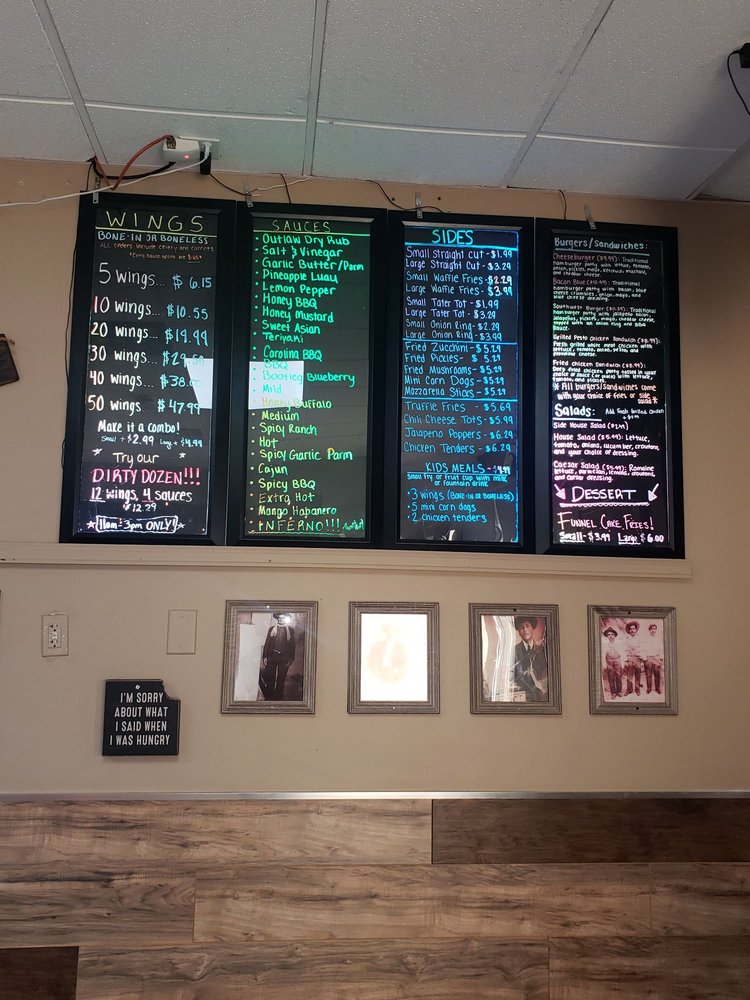 WINGS
BONE-IN OR BONELESS
ALL orders include celery and carrots
5 wings... $ 6.15
10 wings... $10.55
20 wings... $19.99
30 wings...
40 wings... $38.00
50 wings... $47.99
Make it a combo!
Small +$2.99 Large +$4.99
Try our
DIRTY DOZEN!!!
12 wings, 4 sauces
$12.29
11am-3pm ONLY!
SAUCES
Outlaw Dry Rub
Salt & Vinegar
Garlic Butter/Parm
Pineapple Luau
Lemon Pepper
Honey BBQ
Honey Mustard
Sweet Asian
Teriyaki
Carolina BBQ
BBQ
Bootleg Blueberry
Mild
Honey Buffalo
Medium
Spicy Ranch
Hot
Spicy Garlic Parm
Cajun
Spicy BBQ
Extra Hot
Mango Habanero
INFERNO!!!
SIDES
Small Straight Cut - $1.99
Large Straight Cut - $3.29
Small Waffle Fries - $2.29
Large Waffle Fries - $3.99
Small Tater Tot - $1.99
Large Tater Tot - $3.29
Small Onion Ring - $2.29
Large Onion Ring - $3.99
Fried Zucchini - $5.29
Fried Pickles - $5.29
Fried Mushrooms - $5.29
Mini Corn Dogs - $5.29
Mozzarella Sticks - $5.29
Truffle Fries - $5.69
Chili Cheese Tots - $5.99
Jalapeno Poppers - $6.29
Chicken Tenders - $6.29
KIDS MEALS - $4.99
Small fry or fruit cup with milk
or fountain drink
• 3 wings (BONE-IN OR BONELESS)
• 5 mini corn dogs
• 2 chicken tenders
Burgers/Sandwiches:
Cheeseburger ($9.99): Traditional
hamburger patty with lettuce, tomato,
onion, pickles, mayo, ketchup, mustard,
and cheddar cheese.
Bacon Blue ($10.99): Traditional
hamburger patty with bacon, blue
cheese crumbles, onion, mayo, and
blue cheese dressing.
Southwest Burger: Traditional
hamburger patty with jalapeno bacon,
jalapeños, pickles, mayo, cheddar cheese,
topped with an onion ring and BBQ
Sauce.
Grilled Pesto Chicken Sandwich
Fresh grilled white meat chicken with
lettuce, tomato, onion, pesto, and
provolone cheese.
Fried Chicken Sandwich
Deep fried chicken patty tossed in your
choice of sauce with mayo,
lettuce, tomato, and pickles.
* All burgers/sandwiches come
with your choice of fries or side
salad *
Salads: Add Fresh Grilled Chicken
Side House Salad
House Salad: Lettuce,
tomato, onions, cucumber, croutons, and
your choice of dressing.
Caesar Salad: Romaine
lettuce, parmesan, lemons, croutons,
and Caesar dressing.
DESSERT
FUNNEL CAKE FRIES!
Small - $3.99 Large $6.00
I'M SORRY
ABOUT WHAT
I SAID WHEN
I WAS HUNGRY